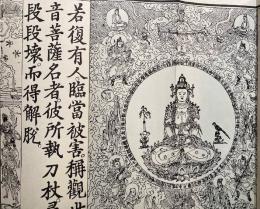 若復有人臨當被害稱觀世
音菩薩名者彼所執刀杖尋
段段壞而得解脫